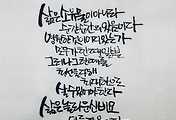 삶은 소유물이 아니라
순간순간의 있음이다
영원한 것이 어디 있는가
모두가 한때일뿐
그러나 그 한때를
최선을 다해
최대한으로
살 수 있어야 한다
삶은 놀라운 신비요